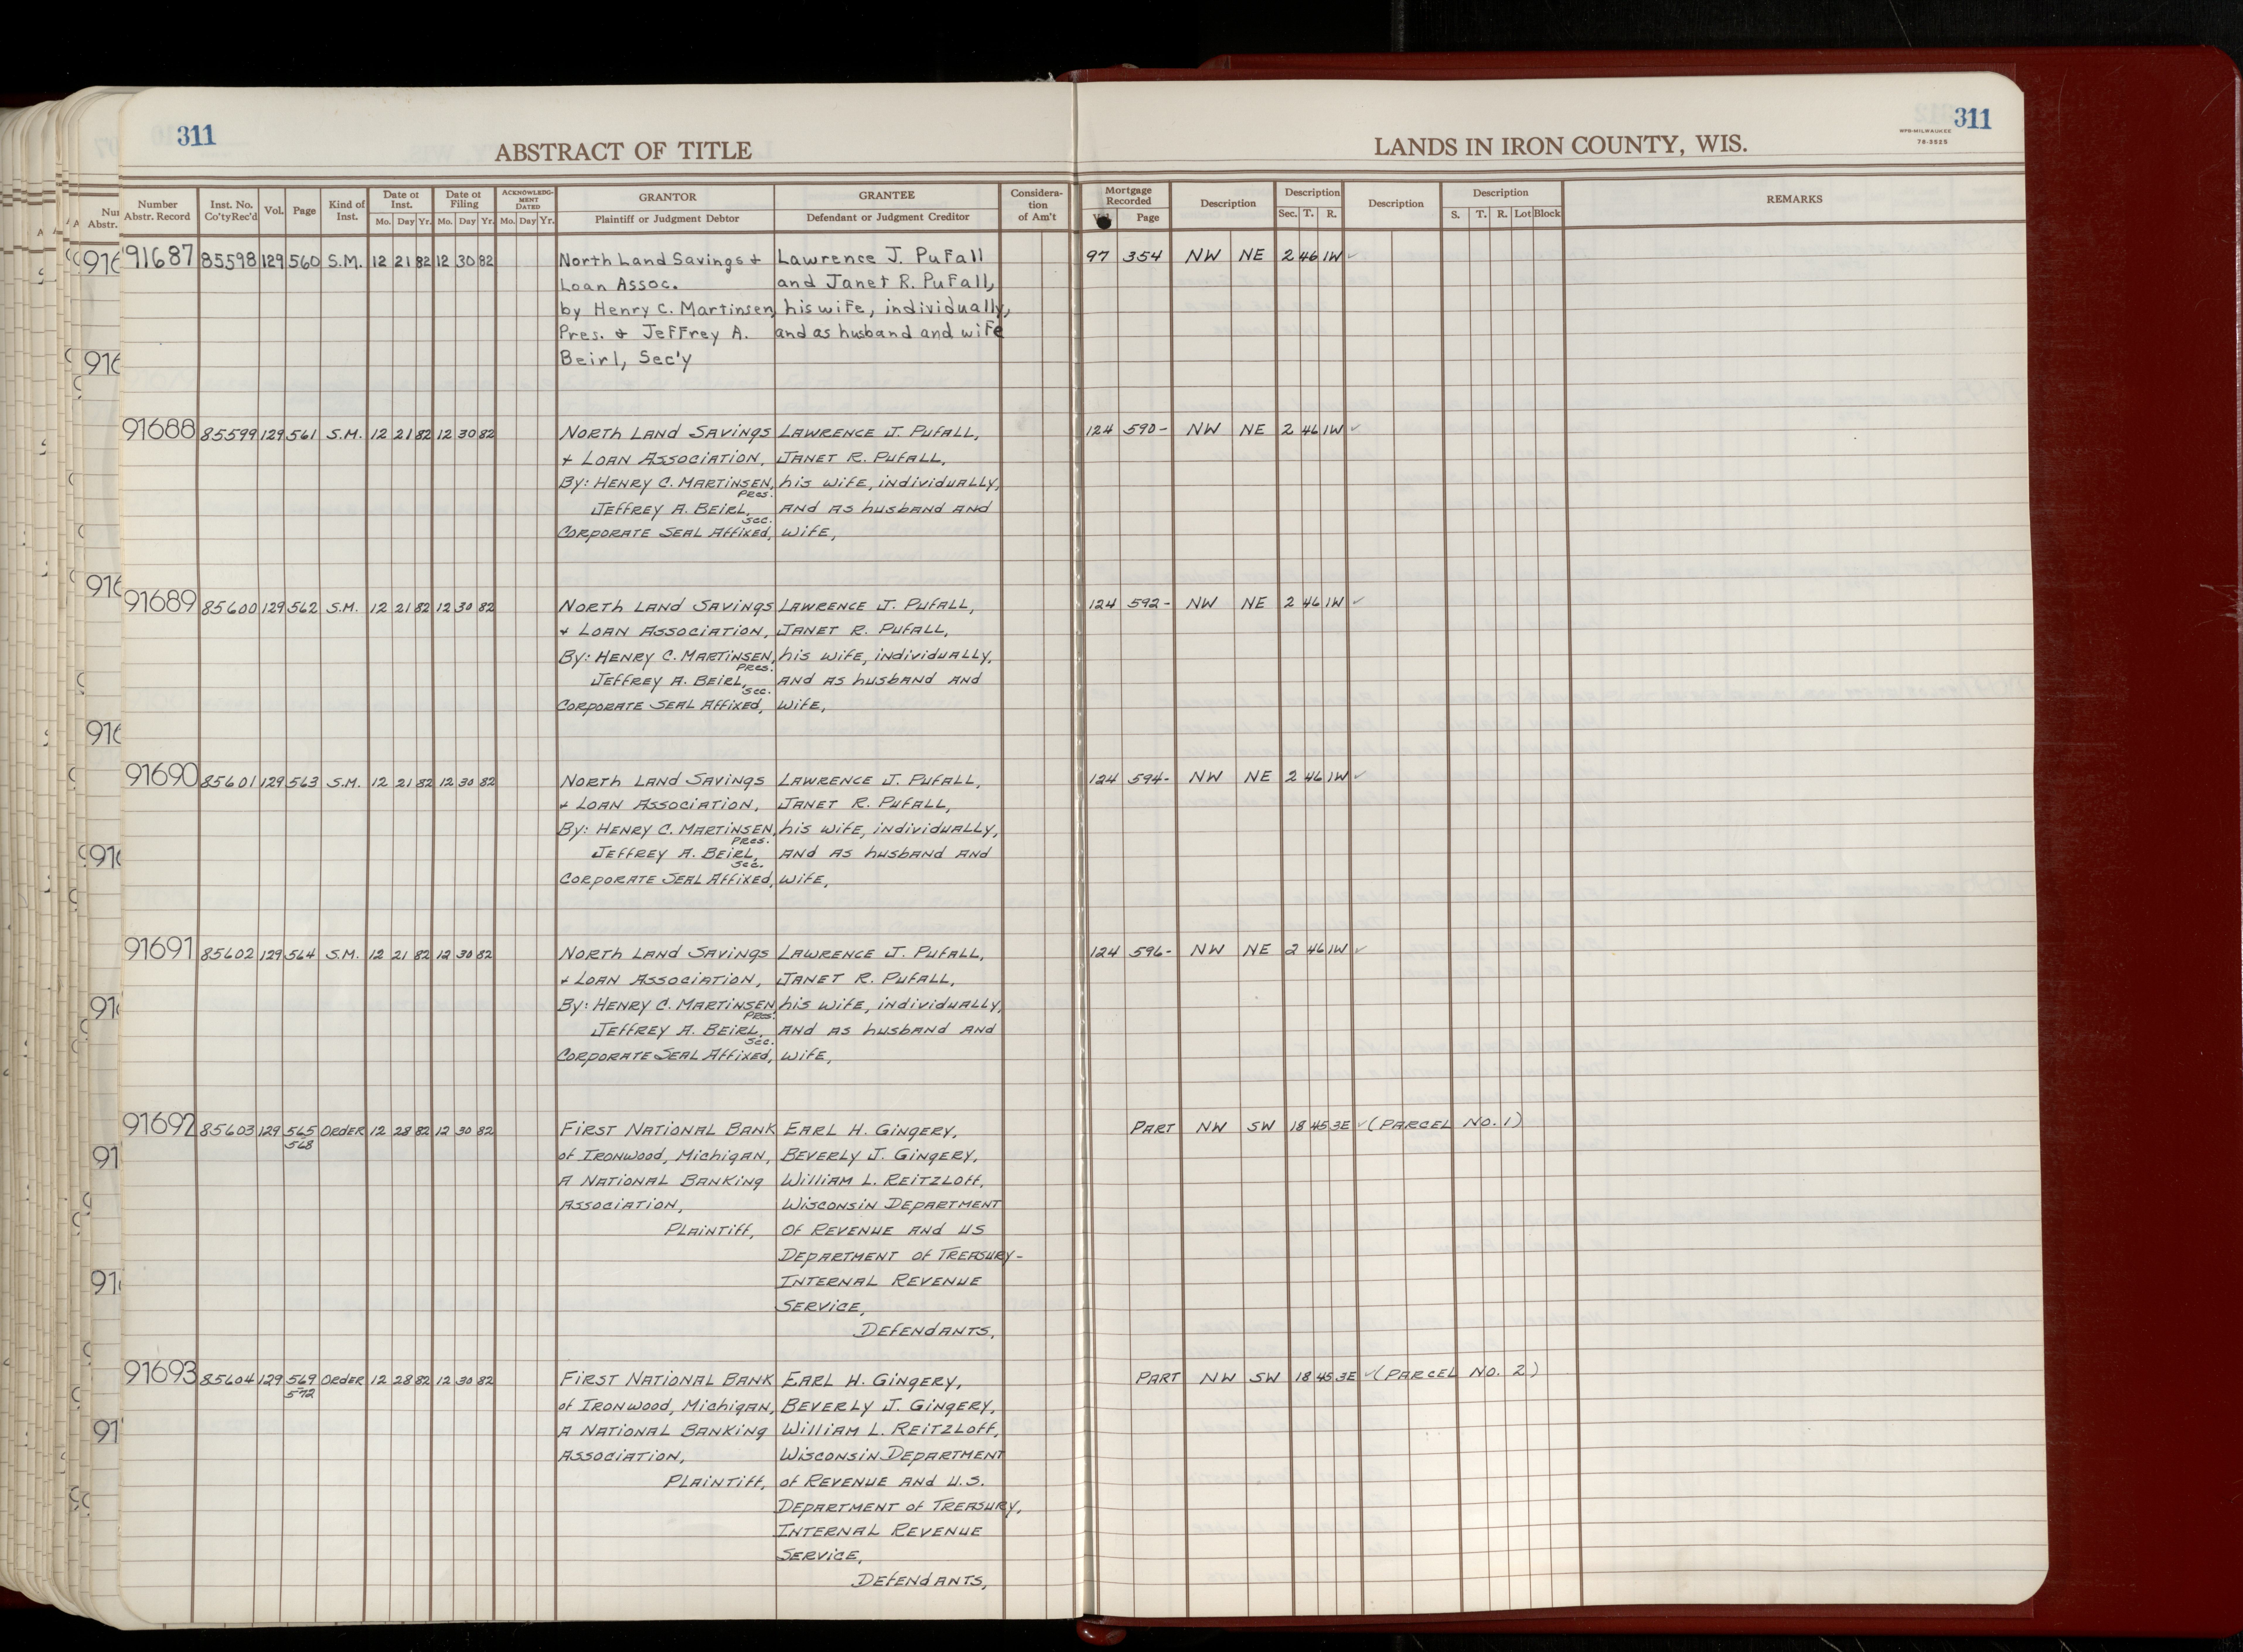 311
ABSTRACT OF TITLE
LANDS IN IRON COUNTY, WIS.
WPB-MILWAUKEE
78-3525
311
Number Abstr. Record | Inst. No. Co'ty Rec'd | Vol. | Page | Kind of Inst. | Date of Inst. Mo. Day Yr. | Date of Filing Mo. Day Yr. | ACKNOWLEDGMENT DATED Mo. Day Yr. | GRANTOR Plaintiff or Judgment Debtor | GRANTEE Defendant or Judgment Creditor | Consideration of Am't | Mortgage Recorded Page | Description | Description Sec. T. R. | Description | Description S. T. R. Lot Block | REMARKS
91687 85598 129 560 S.M. 12 21 82 12 30 82 North Land Savings + Lawrence J. Pufall 97 354 NW NE 2 46 1W ✓
Loan Assoc. and Janet R. Pufall,
by Henry C. Martinsen his wife, individually,
Pres. + Jeffrey A. and as husband and wife
Beirl, Sec'y
91688 85599 129 561 S.M. 12 21 82 12 30 82 North Land Savings Lawrence J. Pufall, 124 590- NW NE 2 46 1W ✓
+ Loan Association, Janet R. Pufall,
By: Henry C. Martinsen, Pres. his wife, individually,
Jeffrey A. Beirl, Sec. and as husband and
Corporate Seal Affixed, wife,
91689 85600 129 562 S.M. 12 21 82 12 30 82 North Land Savings Lawrence J. Pufall, 124 592- NW NE 2 46 1W ✓
+ Loan Association, Janet R. Pufall,
By: Henry C. Martinsen, Pres. his wife, individually,
Jeffrey A. Beirl, Sec. and as husband and
Corporate Seal Affixed, wife,
91690 85601 129 563 S.M. 12 21 82 12 30 82 North Land Savings Lawrence J. Pufall, 124 594- NW NE 2 46 1W ✓
+ Loan Association, Janet R. Pufall,
By: Henry C. Martinsen, Pres. his wife, individually,
Jeffrey A. Beirl, Sec. and as husband and
Corporate Seal Affixed, wife,
91691 85602 129 564 S.M. 12 21 82 12 30 82 North Land Savings Lawrence J. Pufall, 124 596- NW NE 2 46 1W ✓
+ Loan Association, Janet R. Pufall,
By: Henry C. Martinsen, Pres. his wife, individually,
Jeffrey A. Beirl, Sec. and as husband and
Corporate Seal Affixed, wife,
91692 85603 129 565 568 Order 12 28 82 12 30 82 First National Bank Earl H. Gingery, Part NW SW 18 45 3E ✓ (Parcel No. 1)
of Ironwood, Michigan, Beverly J. Gingery,
a National Banking William L. Reitzloff,
Association, Wisconsin Department
Plaintiff, Of Revenue and US
Department of Treasury-
Internal Revenue
Service,
Defendants,
91693 85604 129 569 572 Order 12 28 82 12 30 82 First National Bank Earl H. Gingery, Part NW SW 18 45 3E ✓ (Parcel No. 2)
of Ironwood, Michigan, Beverly J. Gingery,
a National Banking William L. Reitzloff,
Association, Wisconsin Department
Plaintiff, of Revenue and U.S.
Department of Treasury,
Internal Revenue
Service,
Defendants,